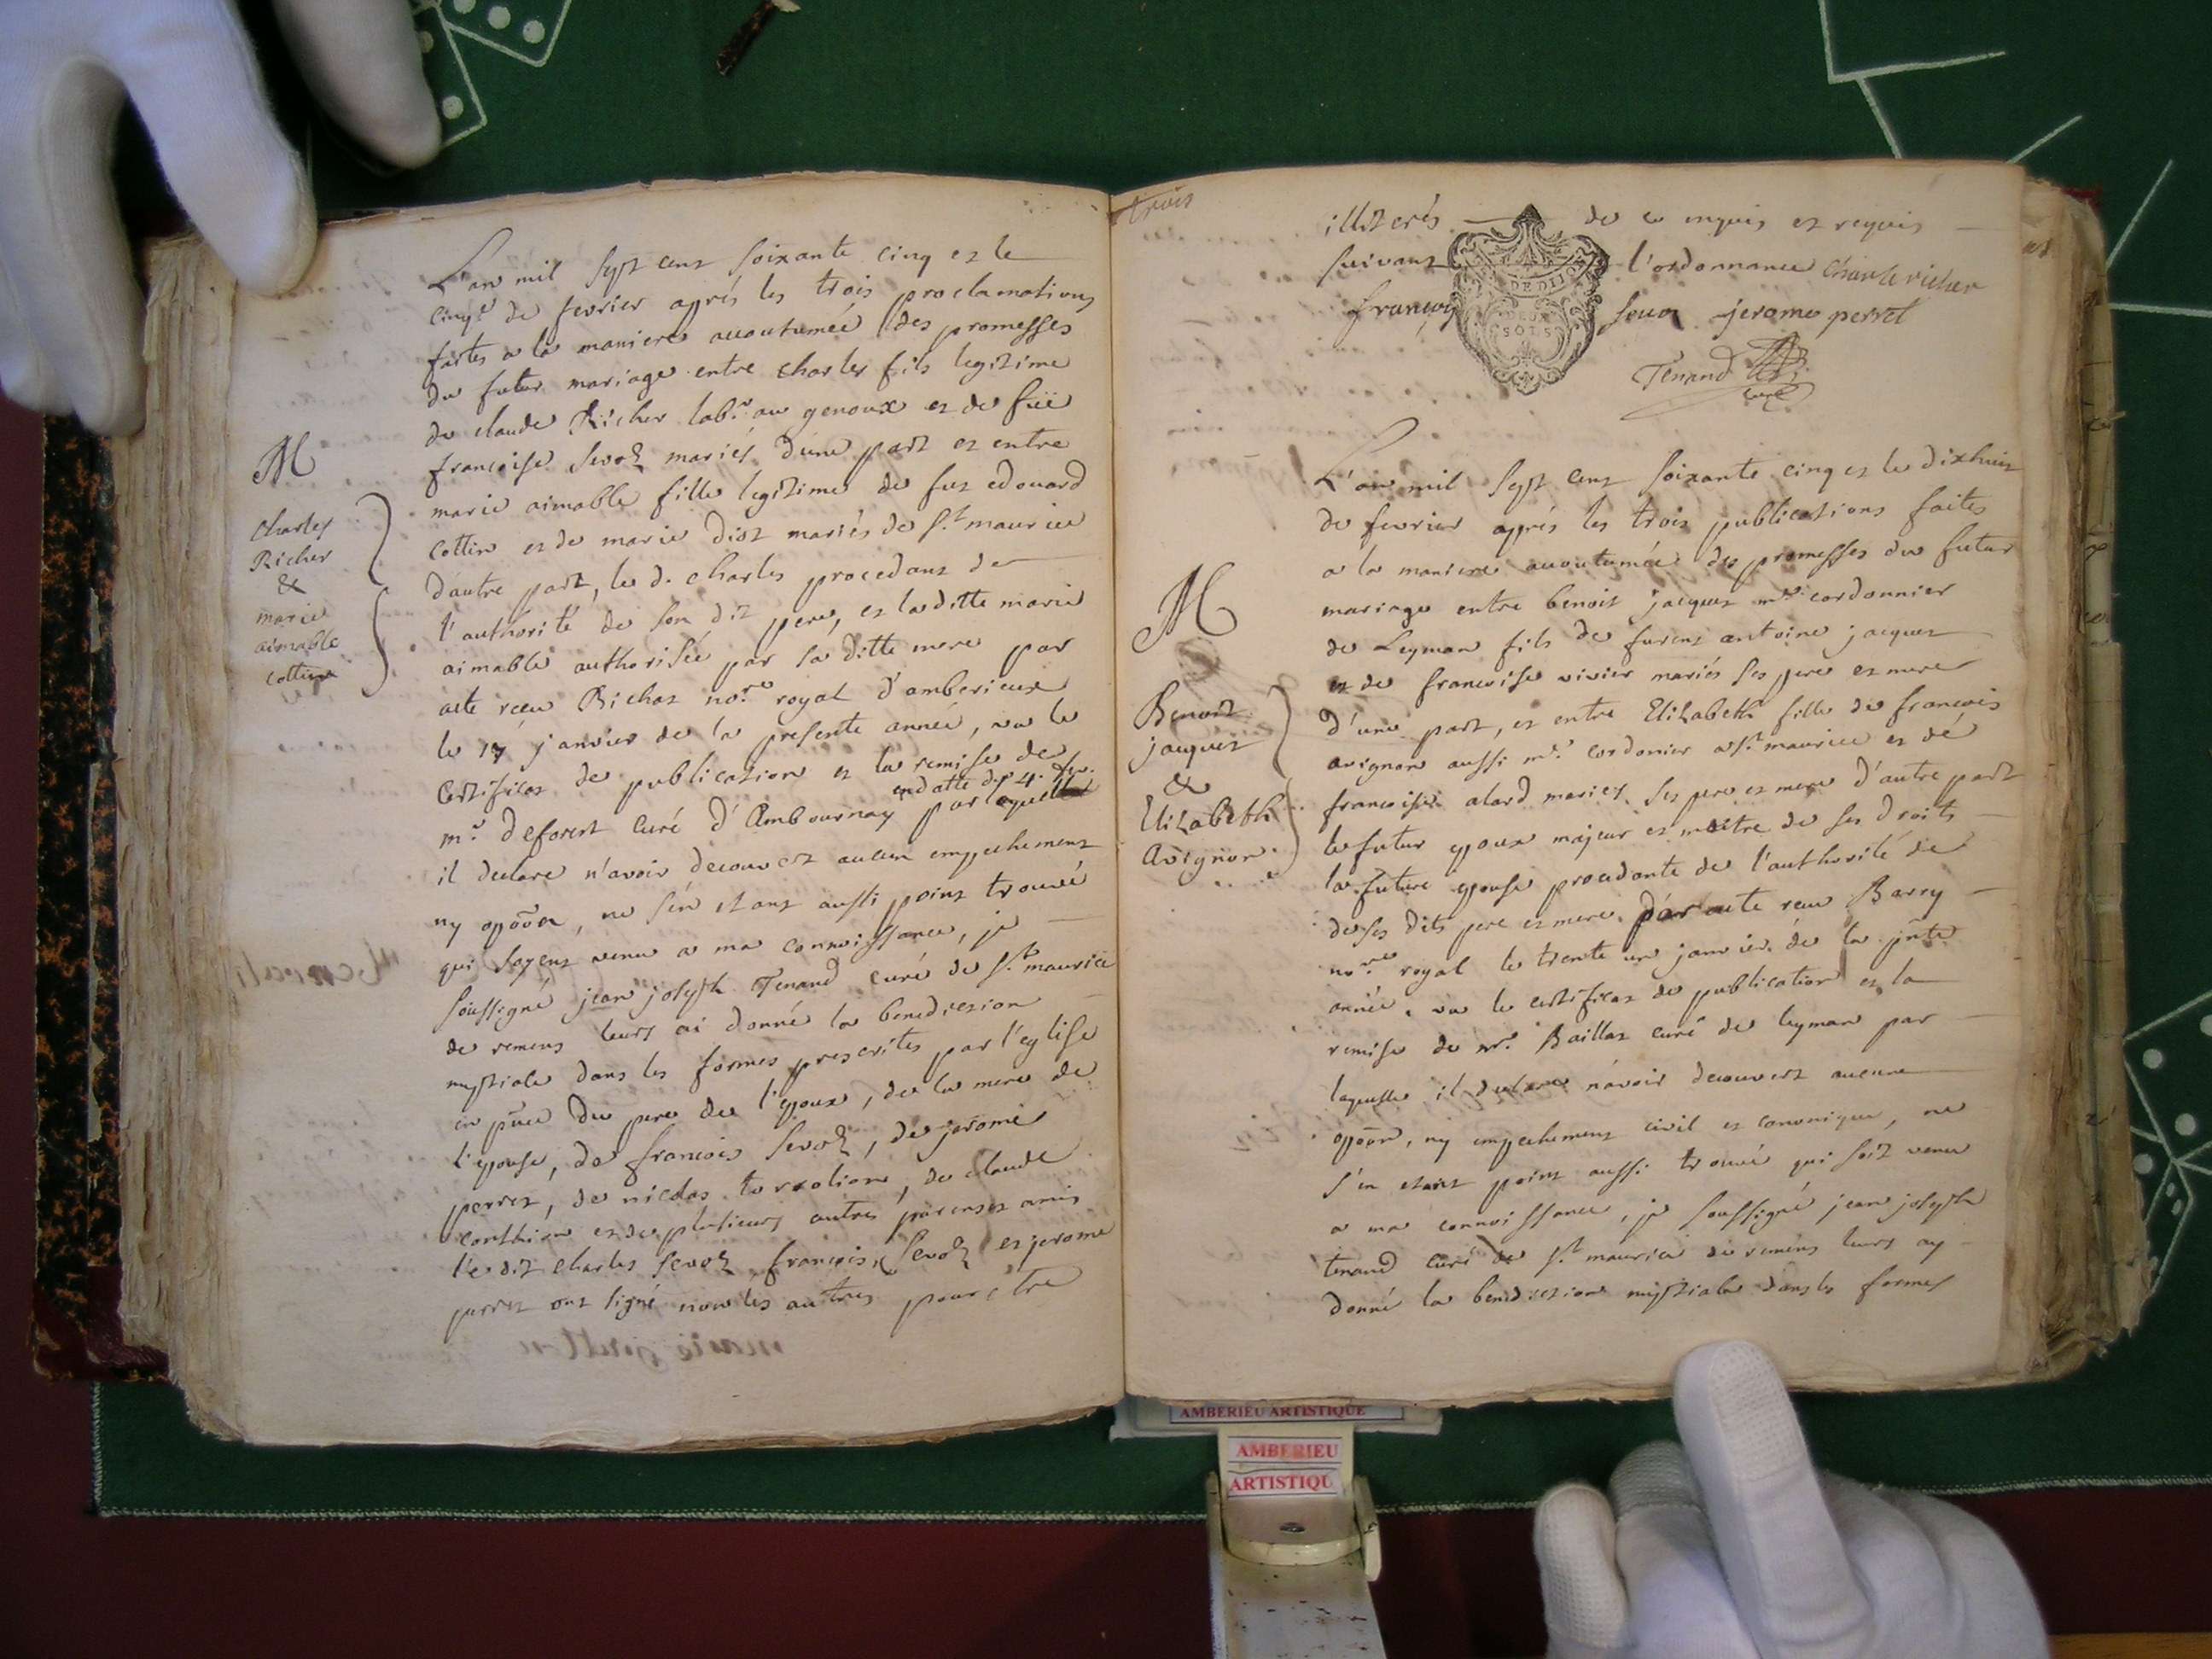 L'an mil sept cent soixante cinq et le
cinq.e de fevrier aprés les trois proclamations
faites a la maniere accoutumée des promesses
du futur mariage entre charles fils legitime
de claude Richer lab.r au genoux et de füe
francoise Sevoz mariés d'une part et entre
marie aimable fille legitime de fut edouard
cottin et de marie mariés de s.t maurice
d'autre part, le d. charles procedant de
l'authorité de son dit pere, et la ditte marie
aimable authorisée par sa ditte mere par
acte receu Bichat no.re royal d'amberieux
le 17 janvier de la presente année, vu le
certificat de publication et la remise de
m.r deforest curé d'Ambournay en datte d. 4. fev. par laquelle
il declare n'avoir decouvert aucun empechement
ny opõõn, ne s'en etant aussi point trouvé
qui soyent venu a ma connoissance, je
soussigné jean joseph Tenand curé de s.t maurice
de remens leurs ai donné la benediction
nuptiale dans les formes prescrites par l'eglise
en pñce du pere de l'epoux, de la mere de
l'epouse, de francois Sevoz, de jerome
perret, de nicolas, de claude
et de plusieurs autres parens et amis
le dit charles francois Sevoz et jerome
perret ont signé non les autres pour etre
M
Charles
Richer
&
marie
aimable
cottin
trois
illiterés de ce enquis et requis
suivant l'ordonnance Charle richer
françois jerome perret
DE DIJON
DEUX
SOLS
Tenand curé
L'an mil sept cent soixante cinq et le dixhuit
de fevrier aprés les trois publications faites
a la maniere accoutumée des promesses du futur
mariage entre benoit jacquet m.re cordonnier
de Leyman fils de furent antoine jacquet
et de francoise vivier mariés ses pere et mere
d'une part, et entre Elizabeth fille de francois
avignon aussi m.e cordonier a s.t maurice et de
francoise alard mariés ses pere et mere d'autre part
le futur epoux majeur et maitre de ses droits
la future epouse procedante de l'authorité de
de ses dits pere et mere par acte receu Barry
no.re royal le trente un janvier de la pñte
année, vu le certificat de publication et la
remise de m.r Baillat curé de leyman par
laquelle il declare n'avoir decouvert aucune
opõõn, ny empechement civil et canonique, ne
s'en etant point aussi trouvé qui soit venu
a ma connoissance, je soussigné jean joseph
tenand curé de s.t maurice de remens leurs ay
donné la benediction nuptiale dans les formes
M
Benoit
jacquet
&
Elizabeth
Avignon
AMBERIEU ARTISTIQUE
AMBERIEU
ARTISTIQU